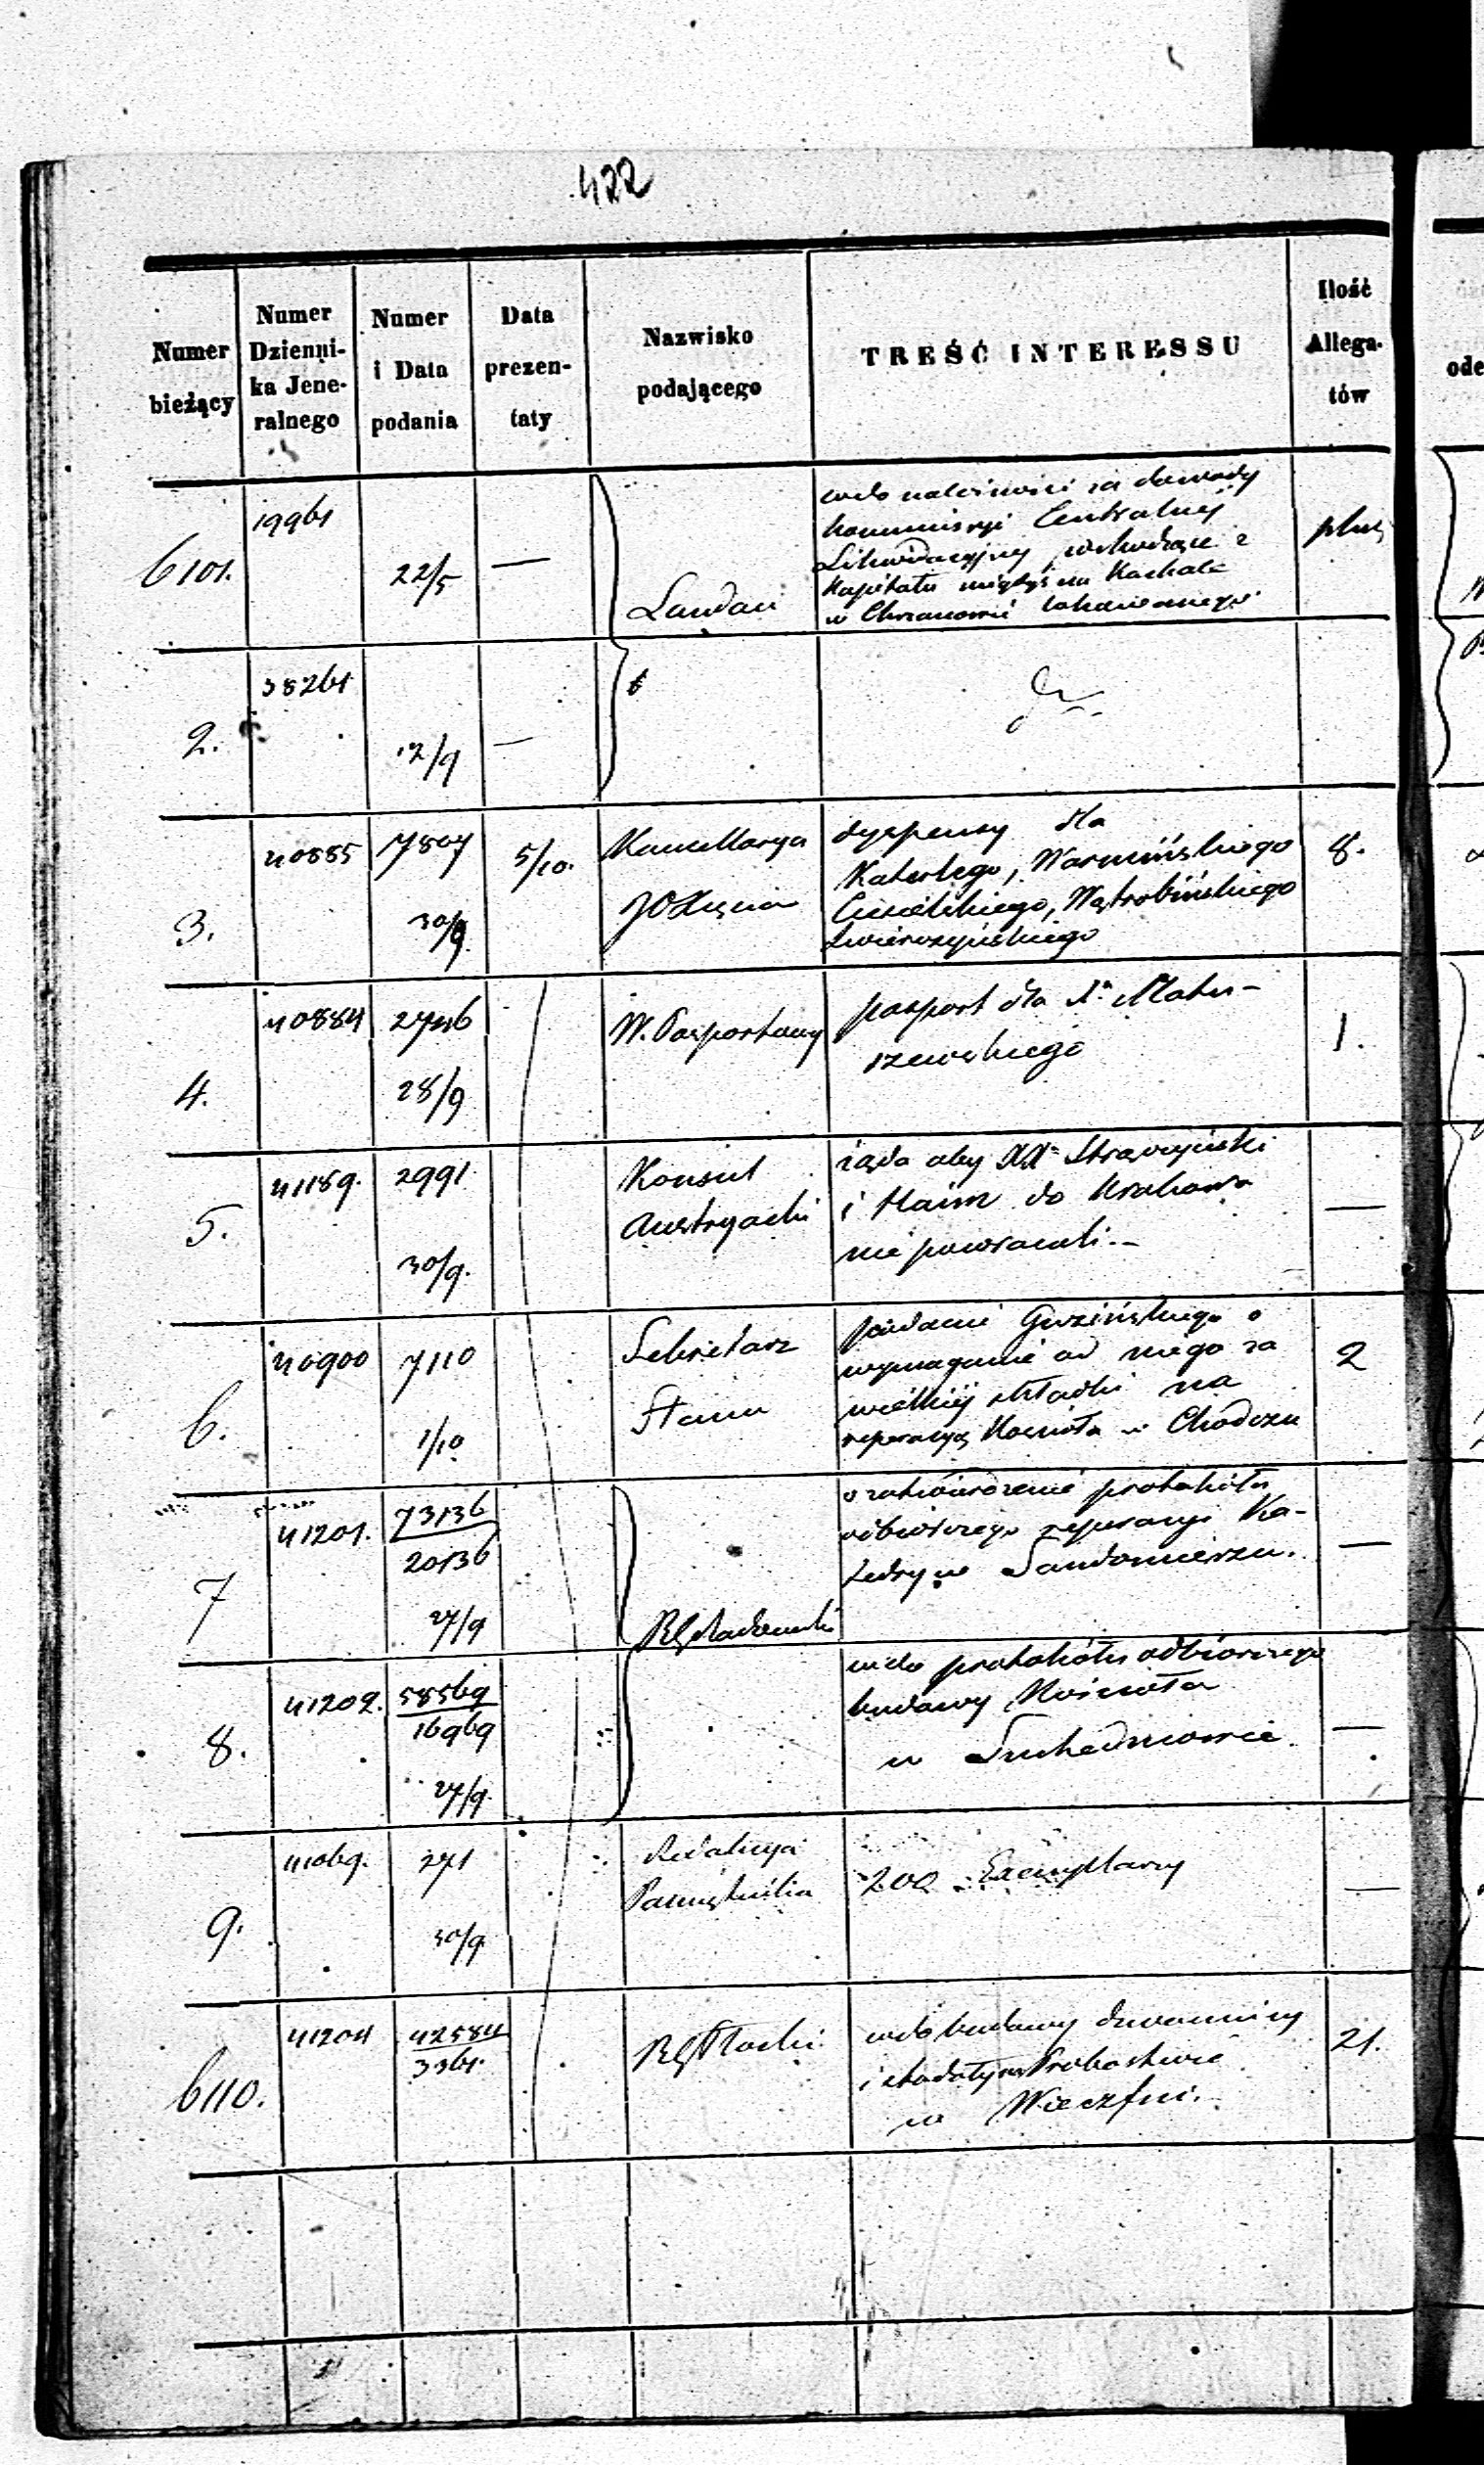 422
Numer
bieżący
Numer
Dzienni-
ka Jene-
ralnego
Numer
i Data
podania
Data
prezen-
taty
Nazwisko
podającego
TREŚĆ INTERESSU
Ilość
Allega-
tów
6101.
19961
22/5
—
Landau
wdo należności za dowody
Kommissyi Centralnej
Likwidacyjnej, wchodzące z
Kapitału między na Kachale
w Chrzanowie
plus
2.
38261
12/9
—
3.
40885
7807
30/9
5/10.
Kancellarya
JO Xięcia
dyspensy dla
Katerlego, Warmińskiego
Ciesielskiego, Wątrobińskiego
Zwierzzyńskiego
8.
4.
40884
2746
28/9
W. Pasportowy
pasport dla Xa Matu-
szewskiego
1.
5.
41189.
2991
30/9.
Konsul
Austryacki
żąda aby XX Straszyński
i Haim do Krakowa
nie powracali.—
—
6.
40900
7110
1/10
Sekretarz
Stanu
podanie Gurzińskiego o
wymaganie od niego za
wielkiej składki na
reperacyą Kościoła w Chodczu
2
7
41201.
73136
20136
27/9
RG Radomski
o zatwierdzenie protokółu
odbiorczego reperacyi Ka-
tedry w Sandomierzu.
—
8.
41202.
58569
16969
27/9.
wdo protokółu odbiorczego
budowy Kościoła
w Suchedniowie.
—
9.
41069.
271
30/9
Redakcya
Pamiętnika
200 Exemplarzy
—
6110.
41204
42584
3361.
RG Płocki
wdo budowy dzwonnicy
i stodoły na Probostwie
w Wieczfni.
21.